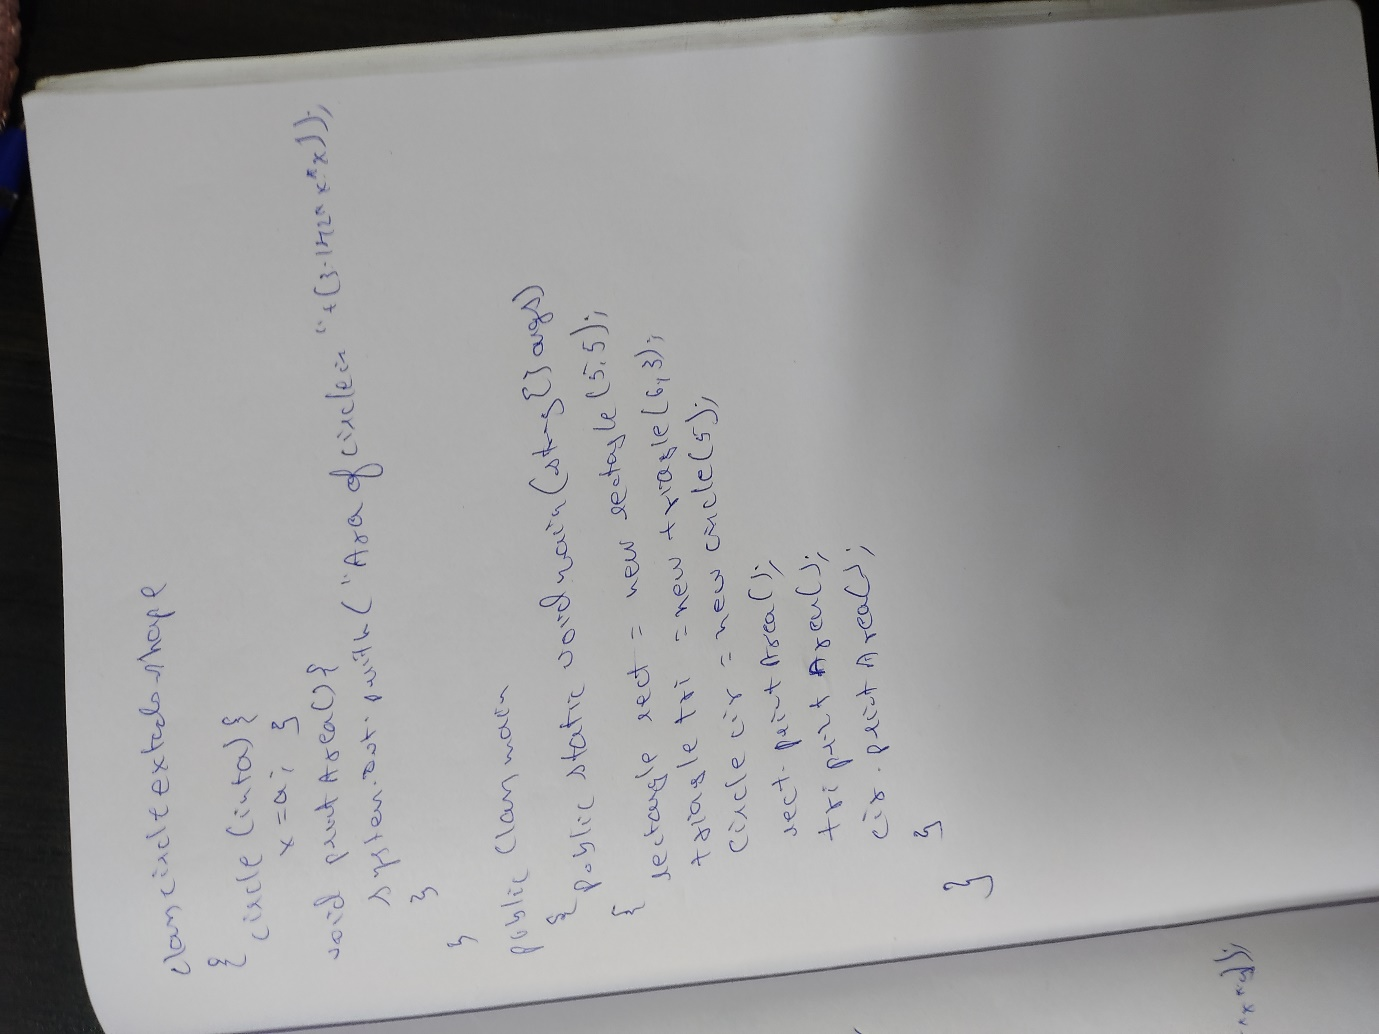 class circle extends shape
{
circle (int a) {
x = a; }
void print Area() {
System.out.println ("Area of circle is "+(3.142* x*x));
}
}
public class main
{
public static void main (string [] args)
{
rectangle rect = new rectagle (5,5);
triangle tri = new triagle (6,3);
circle cir = new circle (5);
rect. print Area();
tri print Area();
cir. print Area();
}
}
*x*y));